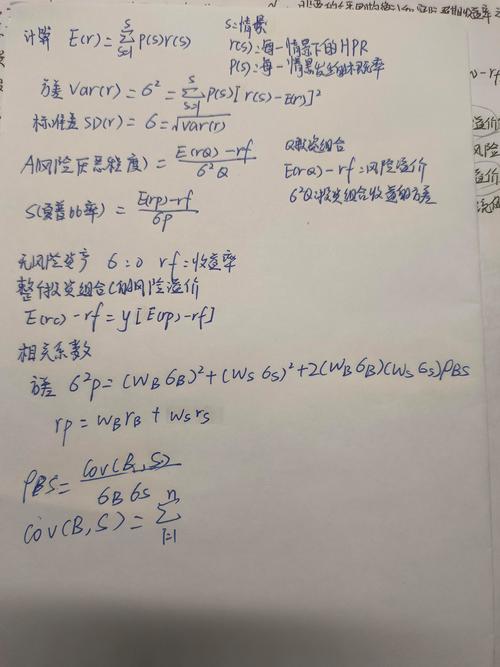 计算 E(r)=∑_{s=1}^{S} P(s)r(s)
s=情景
r(s)=每一情景下的HPR
P(s)=每一情景发生的概率
方差 Var(r)=6²=∑_{s=1}^{S} P(s)[r(s)-E(r)]²
标准差SD(r)=6=√Var(r)
A(风险厌恶程度)=\frac{E(rQ)-rf}{6²Q}
Q投资组合
E(rQ)-rf=风险溢价
6²Q:投资组合收益的方差
S(夏普比率)=\frac{E(rp)-rf}{6p}
无风险资产 6=0 rf=收益率
整个投资组合C的风险溢价
E(rc)-rf=y[E(rp)-rf]
相关系数
方差 6²p=(WB6B)²+(Ws6s)²+2(WB6B)(Ws6s)ρBS
rp=WBrB+Wsrs
ρBS=\frac{Cov(B,S)}{6B6s}
Cov(B,S)=∑_{i=1}^{n}
-rf
溢价
风险
溢价